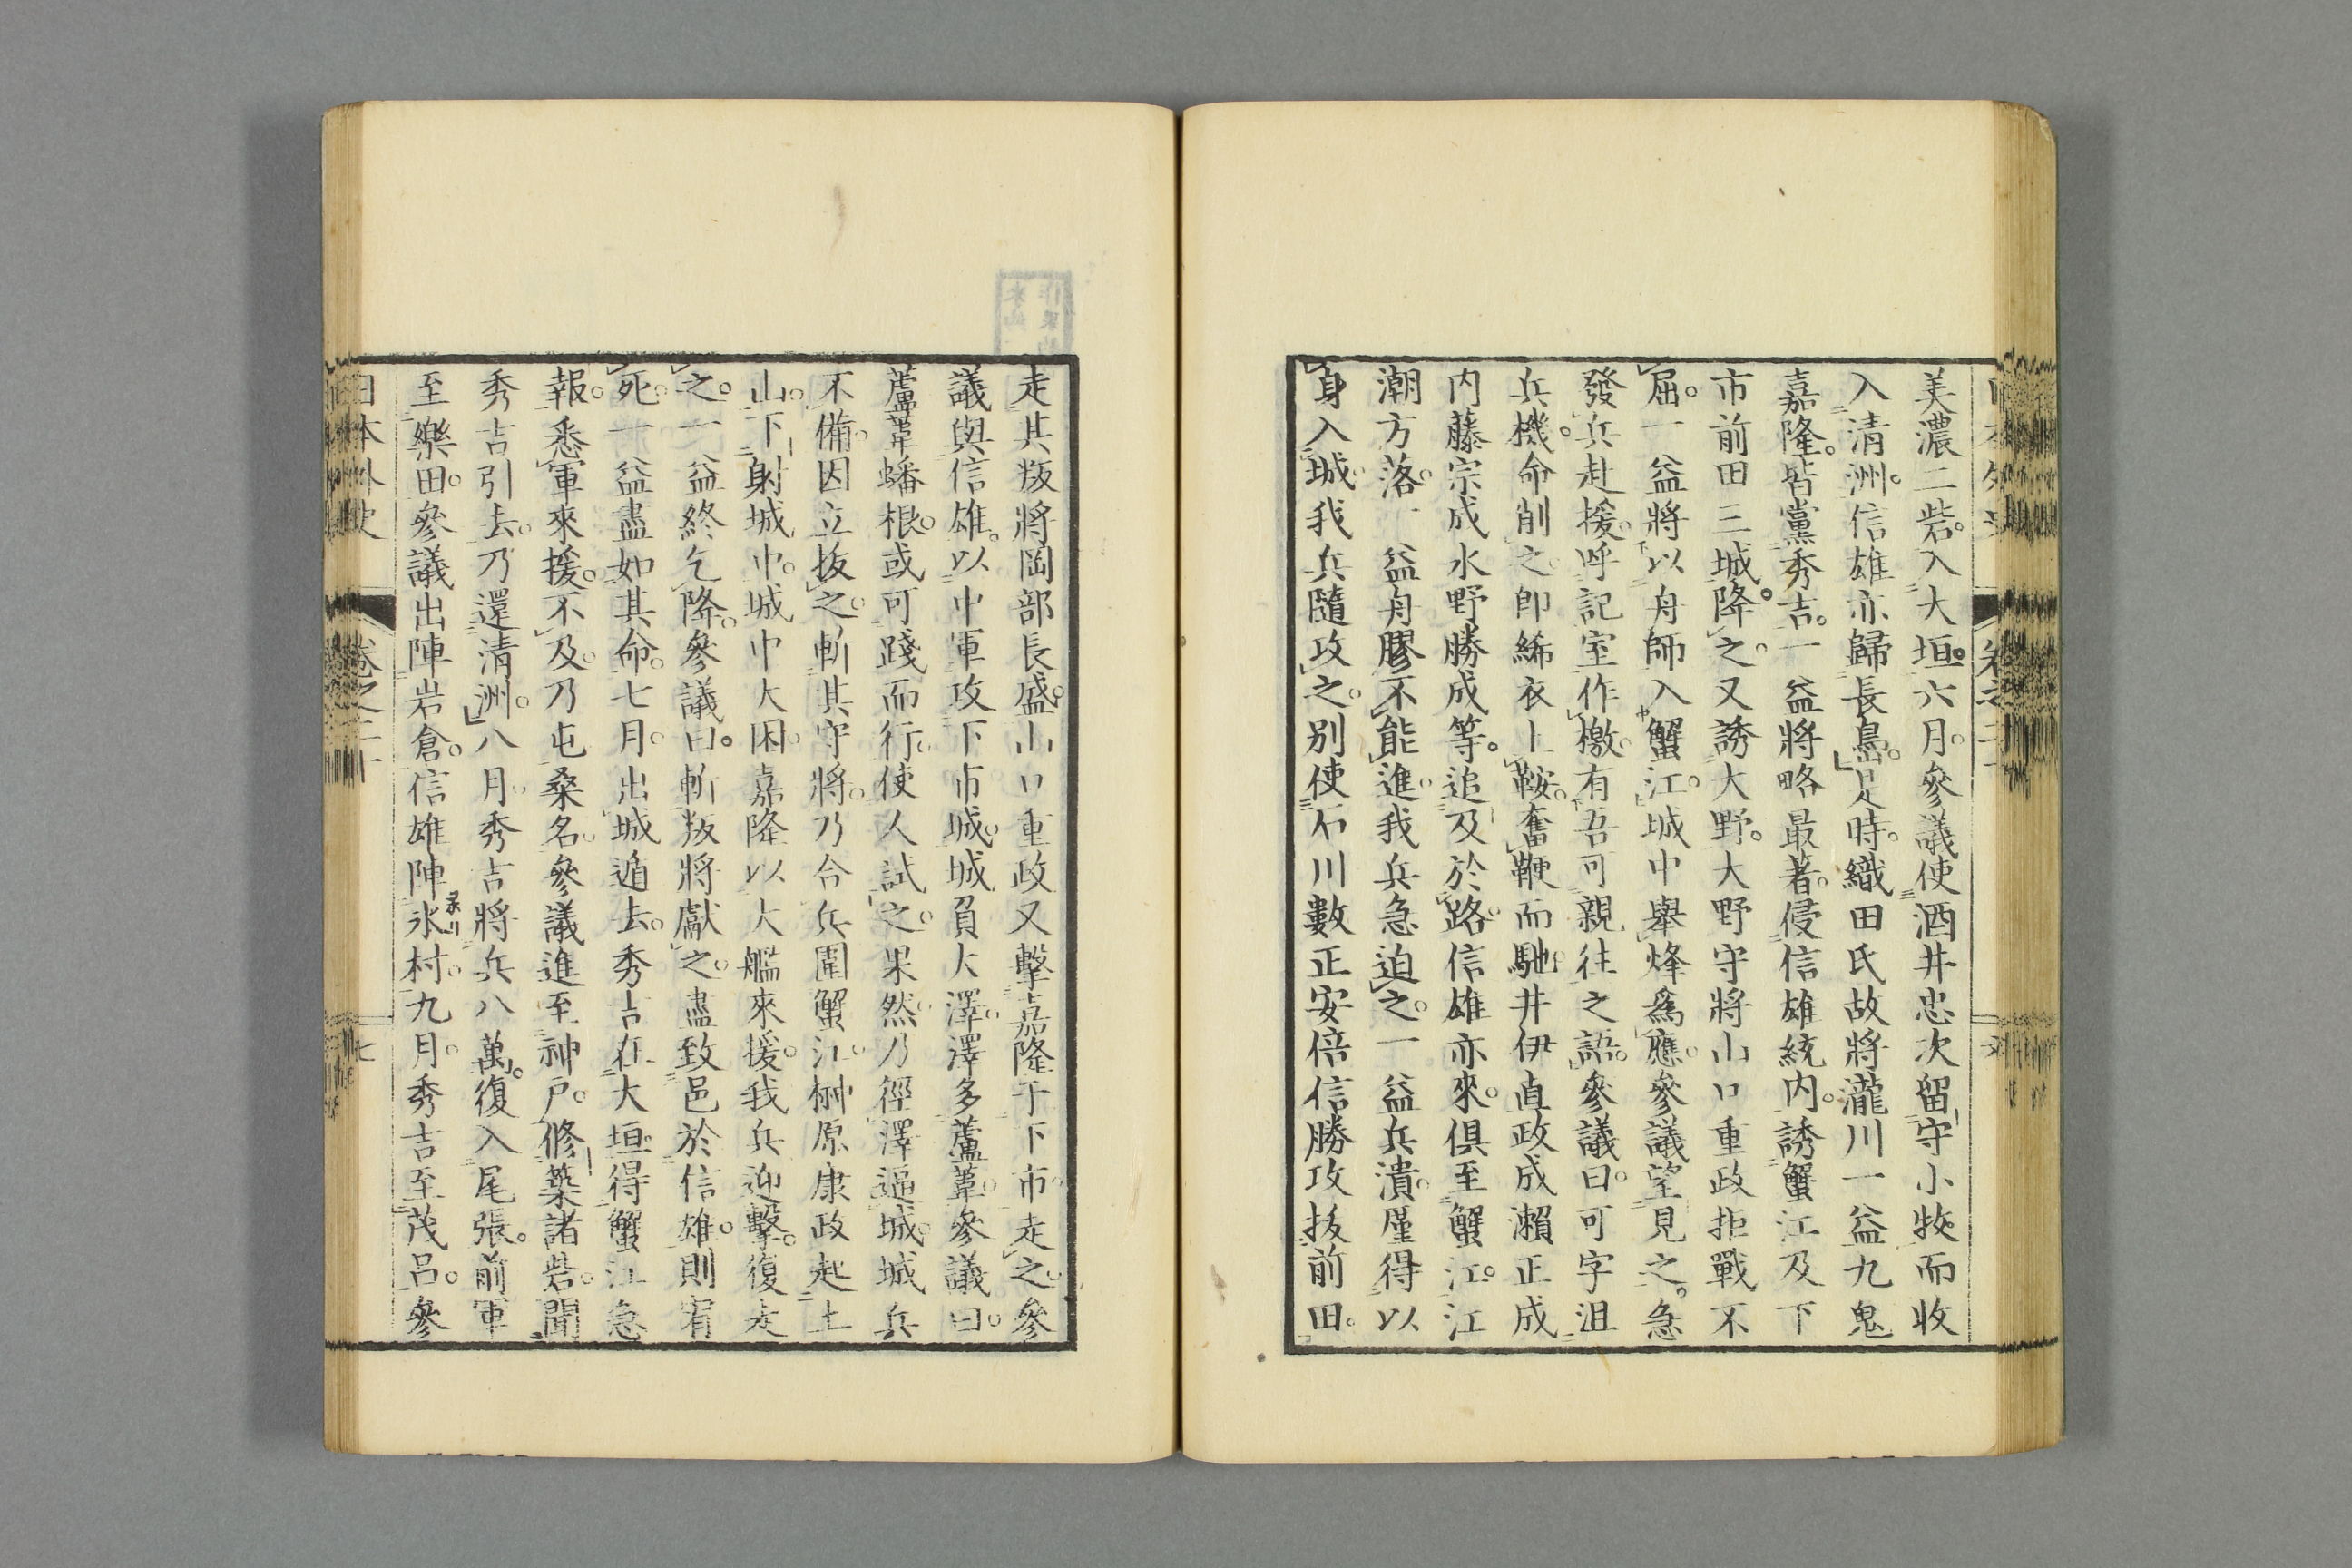 美濃二砦。入大垣。六月。參議使酒井忠次留守小牧而收
入清洲。信雄亦歸長島。是時。織田氏故將瀧川一益九鬼
嘉隆。皆黨秀吉。一益將略最著。侵信雄統内。誘蟹江及下
市前田三城。降之。又誘大野。大野守將山口重政拒戰不
屈。一益將以舟師入蟹江。城中舉烽爲應。參議望見之。急
發兵赴援。呼記室作檄。有吾可親往之語。參議曰。可字沮
兵機。命削之。卽絺衣上鞍。奮鞭而馳。井伊直政成瀨正成
内藤宗成水野勝成等。追及於路。信雄亦來。俱至蟹江。江
潮方落。一益舟膠不能進。我兵急迫之。一益兵潰。厪得以
身入城。我兵隨攻之。別使石川數正安倍信勝攻拔前田。
走其叛將岡部長盛。山口重政又擊嘉隆于下市。走之。參
議與信雄。以中軍攻下市城。城負大澤。澤多蘆葦。參議曰。
蘆葦蟠根。或可踐而行。使人試之。果然。乃徑澤逼城。城兵
不備。因立拔之。斬其守將。乃合兵圍蟹江。榊原康政起土
山。下射城中。城中大困。嘉隆以大艦來援。我兵迎擊。復走
之。一益終乞降。參議曰。斬叛將獻之。盡致邑於信雄。則宥
死。一益盡如其命。七月。出城遁去。秀吉在大垣。得蟹江急
報。悉軍來援。不及。乃屯桑名。參議進至神戶。修築諸砦。聞
秀吉引去。乃還清洲。八月。秀吉將兵八萬。復入尾張。前軍
至樂田。參議出陣岩倉。信雄陣氷村。九月。秀吉至茂呂。參
日本外史 卷之二十 七